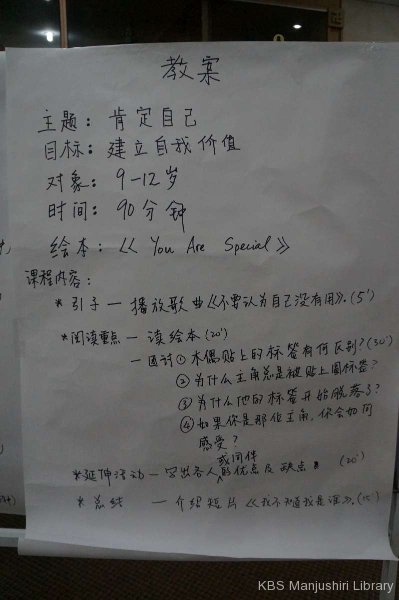 教案
主题：肯定自己
目标：建立自我价值
对象：9-12岁
时间：90分钟
绘本：《You Are Special》
课程内容：
* 引子 — 播放歌曲《不要认为自己没有用》. (5')
*阅读重点 — 读绘本 (20')
— ①木偶贴上的标签有何区别? (30')
②为什么主角总是被贴上圆标签?
③为什么他的标签开始脱落了?
④如果你是那位主角,你会如何
感受?
或同伴
*延伸活动 — 写出各人的优点及缺点 (20')
* 总结 — 介绍短片《我不知道我是谁》. (15')
KBS Manjushiri Library